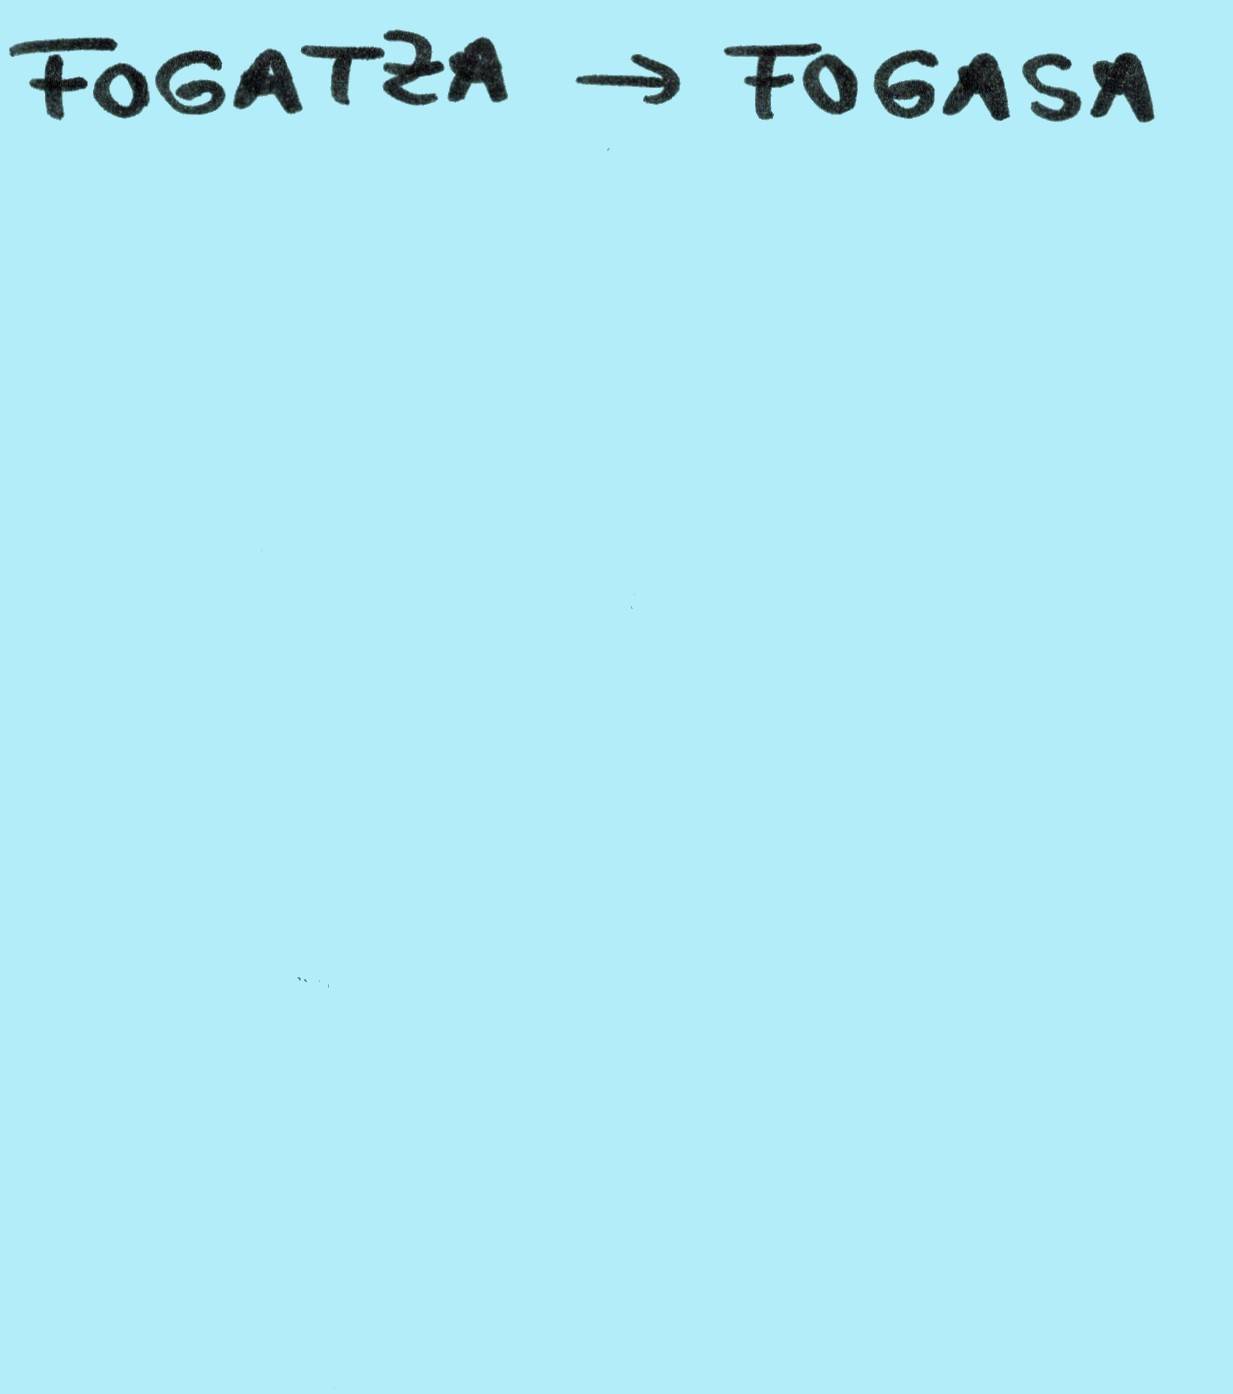 FOGATZA → FOGASA